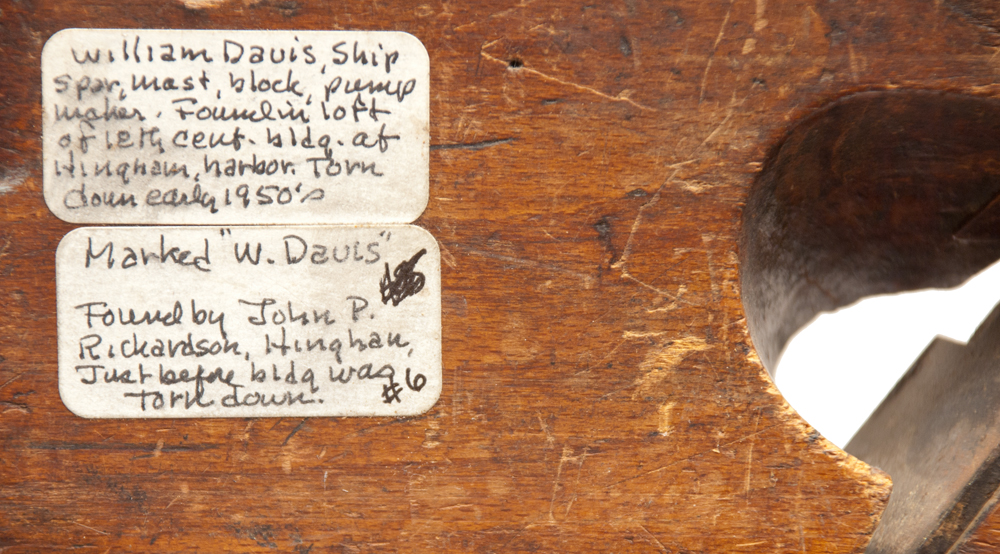 William Davis, Ship
spar, mast, block, pump
maker. Found in loft
of 18th cent. bldg. at
Hingham, harbor. Torn
down early 1950's
Marked "W. Davis"
Found by John P.
Richardson, Hingham,
Just before bldg was
torn down. #6